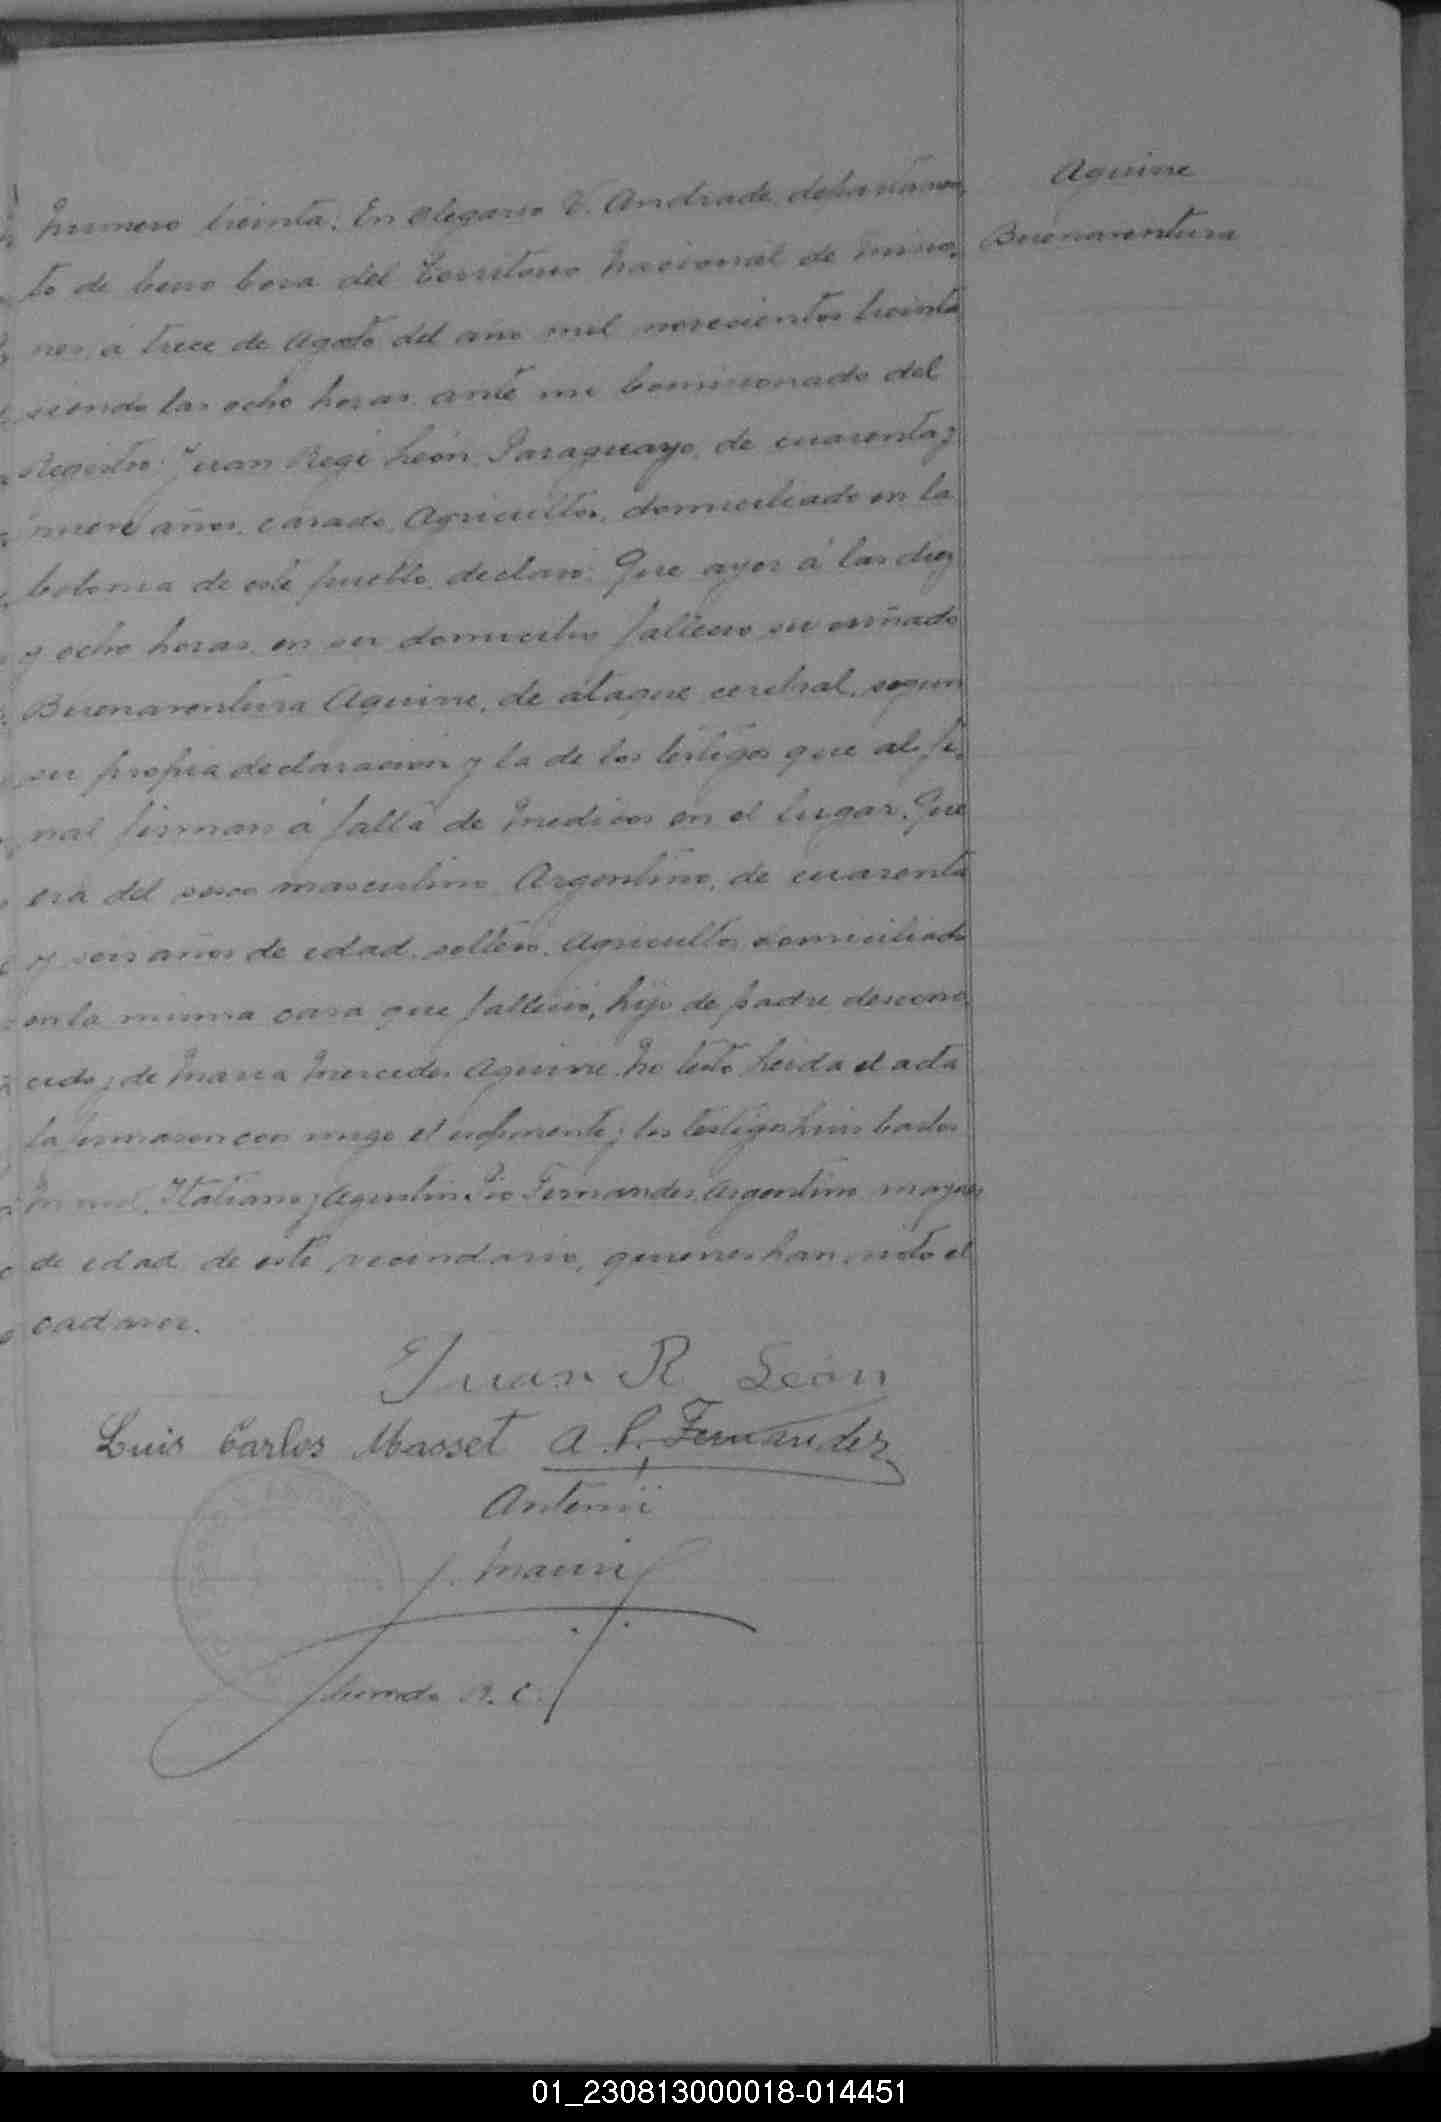 Aguirre
Buenaventura
Numero treinta: En Olegario V. Andrade, departamen
to de Cerro Cora del Territorio Nacional de Misio
nes, á trece de Agosto del año mil novecientos treinta
siendo las ocho horas, ante mi Comisionado del
Registro: Juan Regi León, Paraguayo, de cuarenta y
nueve años, casado, Agricultor, domiciliado en la
Colonia de este pueblo, declaró: Que ayer á las diez
y ocho horas, en su domicilio falleció su cuñado
Buenaventura Aguirre, de ataque cerebral, segun
su propia declaracion y la de los testigos que al fi
nal firman á falta de Medicos en el lugar. Que
era del sexo masculino, Argentino, de cuarenta
y seis años de edad, soltero, Agricultor, domiciliado
en la misma casa que falleció, hijo de padre descono
cido, y de Maria Mercedes Aguirre. No testó. Leida el acta
la firmaron con migo el exponente y los testigos Luis Carlos
Italiano y Agustin Pio Fernandez, Argentino, mayores
de edad, de este vecindario, quienes han visto el
cadaver.
Juan R León
Luis Carlos Masset A. P. Fernandez
Antonio
J. Mauri
R. C.
01_230813000018-014451